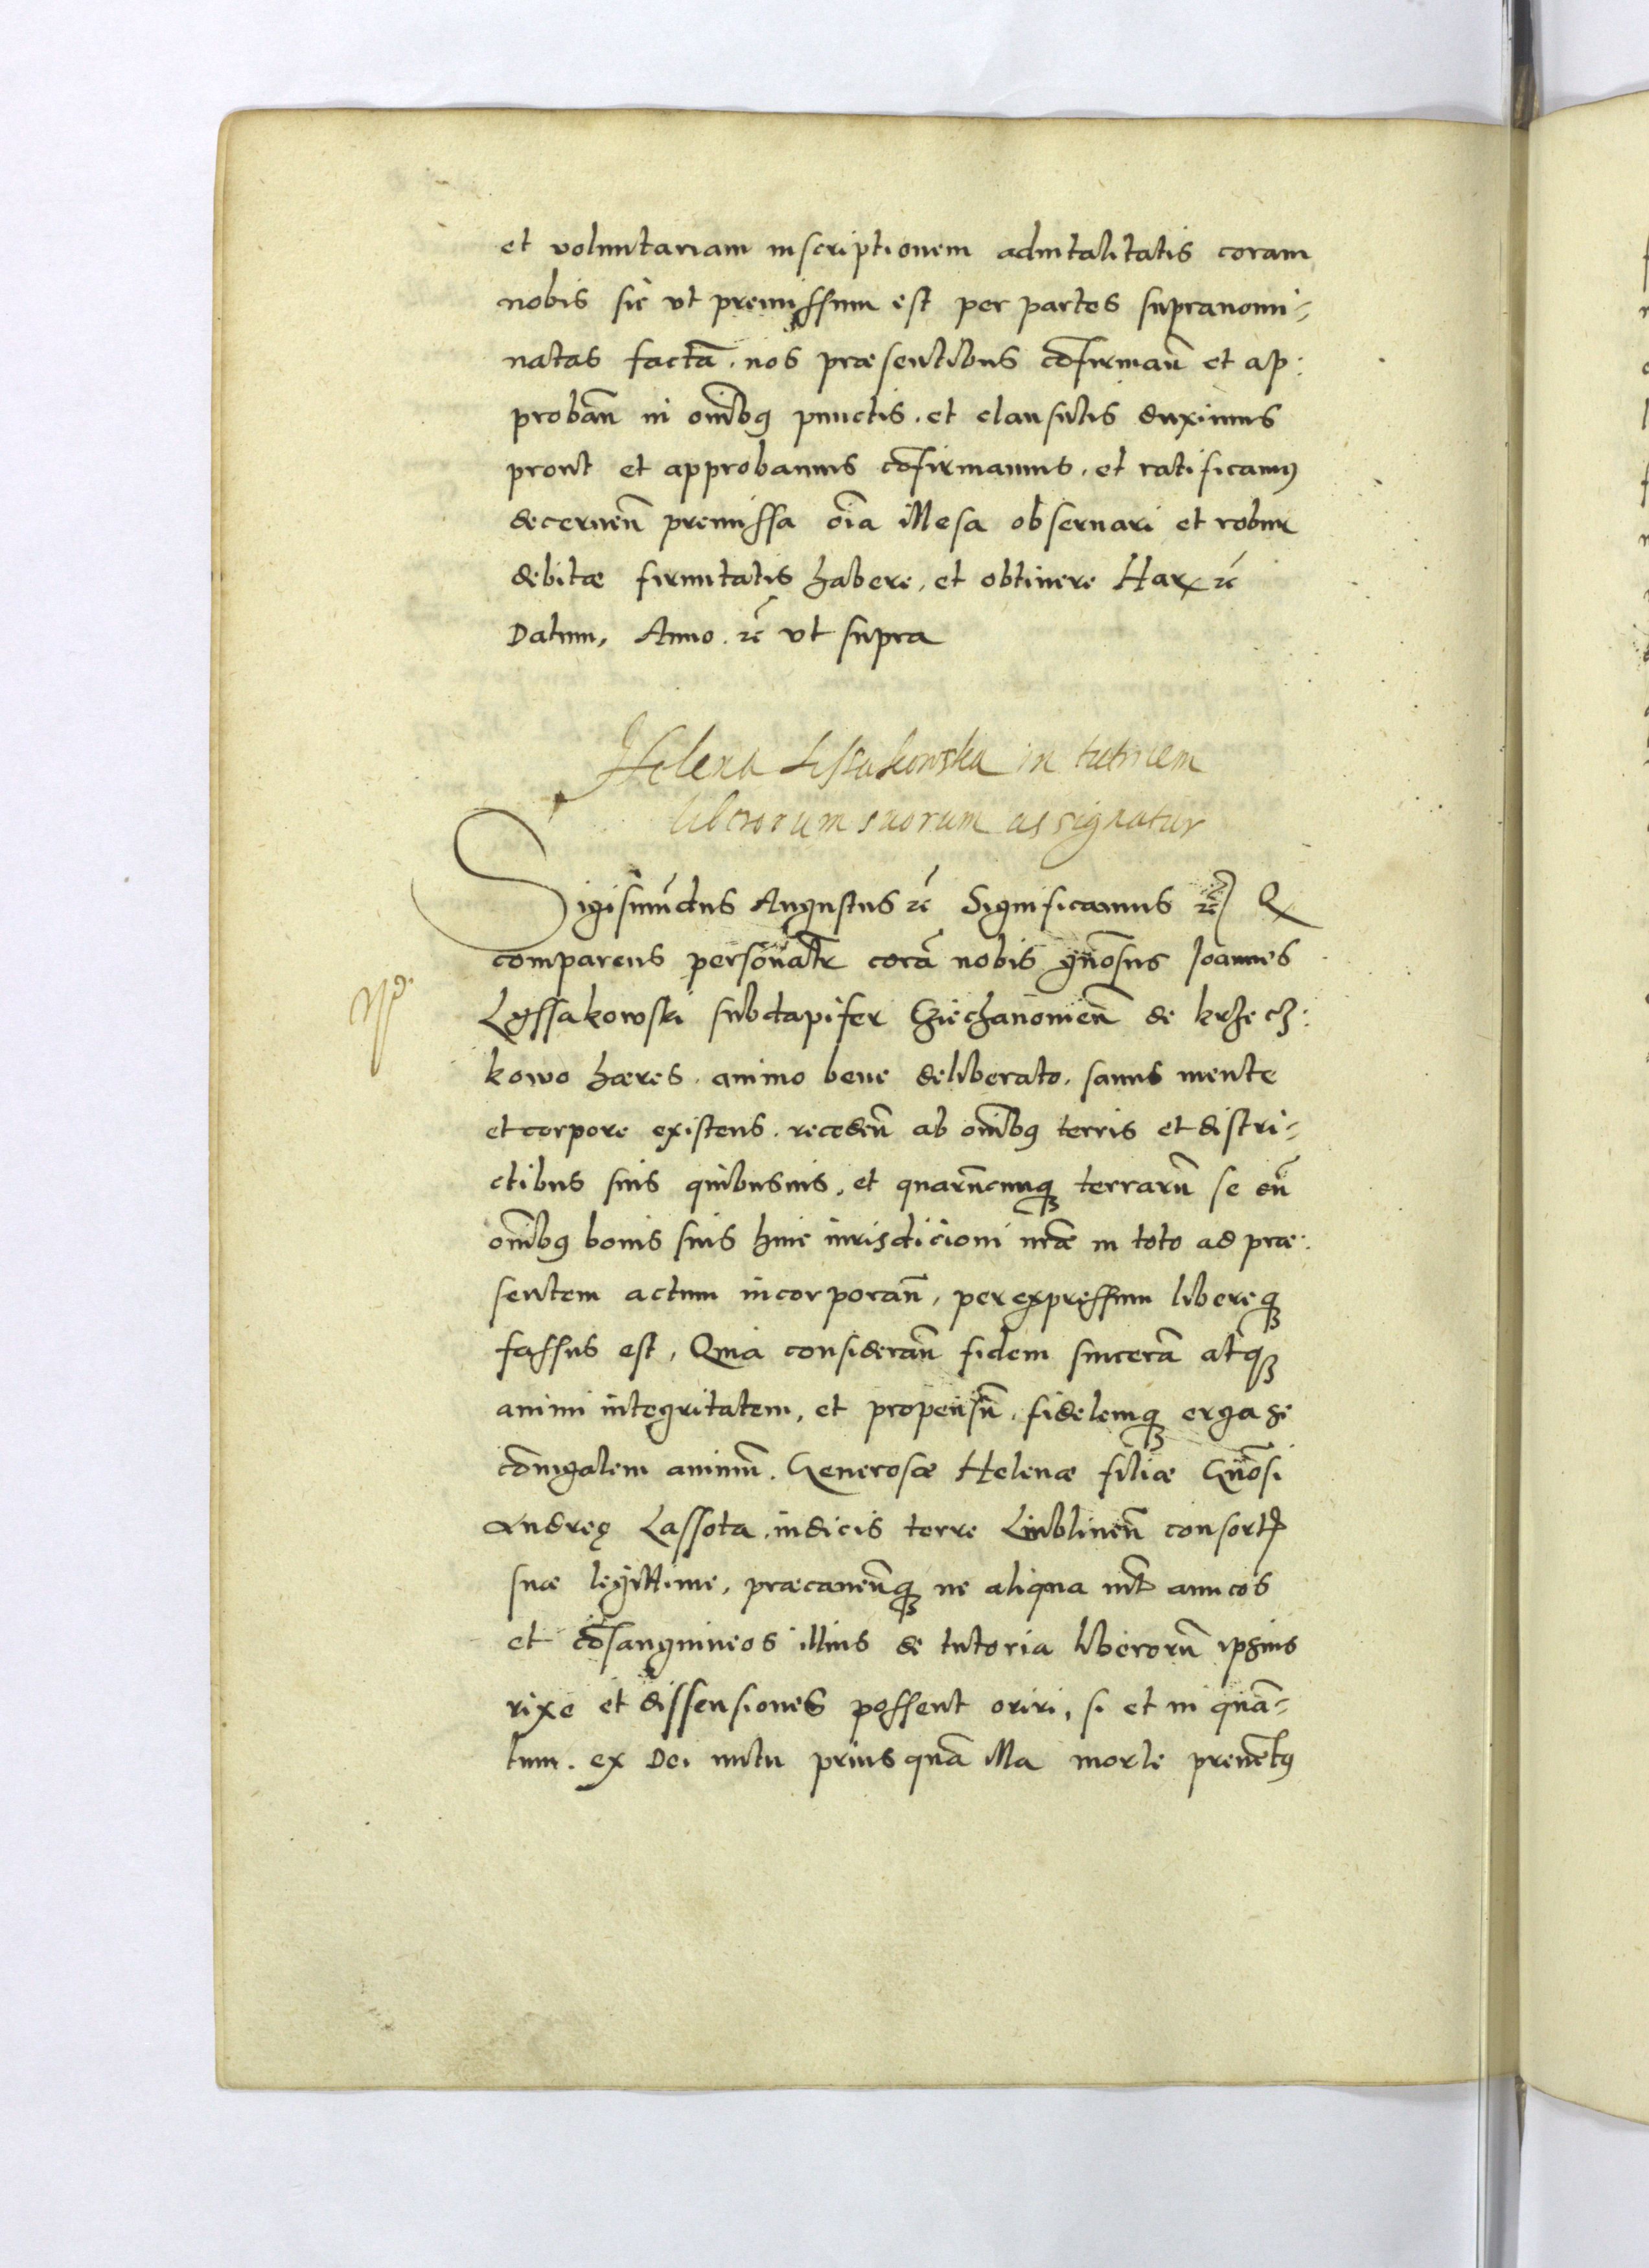 et voluntariam inscriptionem advitalitatis coram
nobis sic vt premissum est per partes supranomi-
natas factā. nos præsentibus cōfirmañ et ap:
probañ in om̄ibus punctis. et clausulis duximus
prout et approbamus cōfirmamus. et ratificamus
decerneñ premissa oīa illesa obseruari et robur
debitæ firmitatis habere, et obtinere Harx rc̃
Datum, Anno. rc̃ vt supra
Helena Lissakowska in tutricem
liberorum suorum assignatur
Sigismūdus Augustus rc̃ Significamus rc̃ Q
comparens personalr̃ corā nobis gn̄osus Joannes
Lyssakowski subdapifer Cziechanouieñ de krzecz:
kowo hæres. animo bene deliberato, sanus mente
et corpore existens. recedeñ ab om̄ibus terris et distri-
ctibus suis quibusuis, et quarūcunq terrarū se cū
om̄ibus bonis suis huic iurisdicioni nr̄æ in toto ad præ:
sentem actum incorporañ, per expressum libereq
fassus est, Quia considerañ fidem sincerā atq
animi integritatem, et propensū, fidelemq erga se
cōiugalem animū. Generosæ Helenæ filiæ Gn̄osi
Andreę Lassota, iudicis terre Lublineñ consortis
suæ legittime, præcaueñq ne aliqua int̄ amicos
et cōsanguineos illius de tutoria liberorū ipsius
rixe et dissensiones possent oriri, si et in quā-
tum. ex Dei nutu prius quā illa morte preuentus